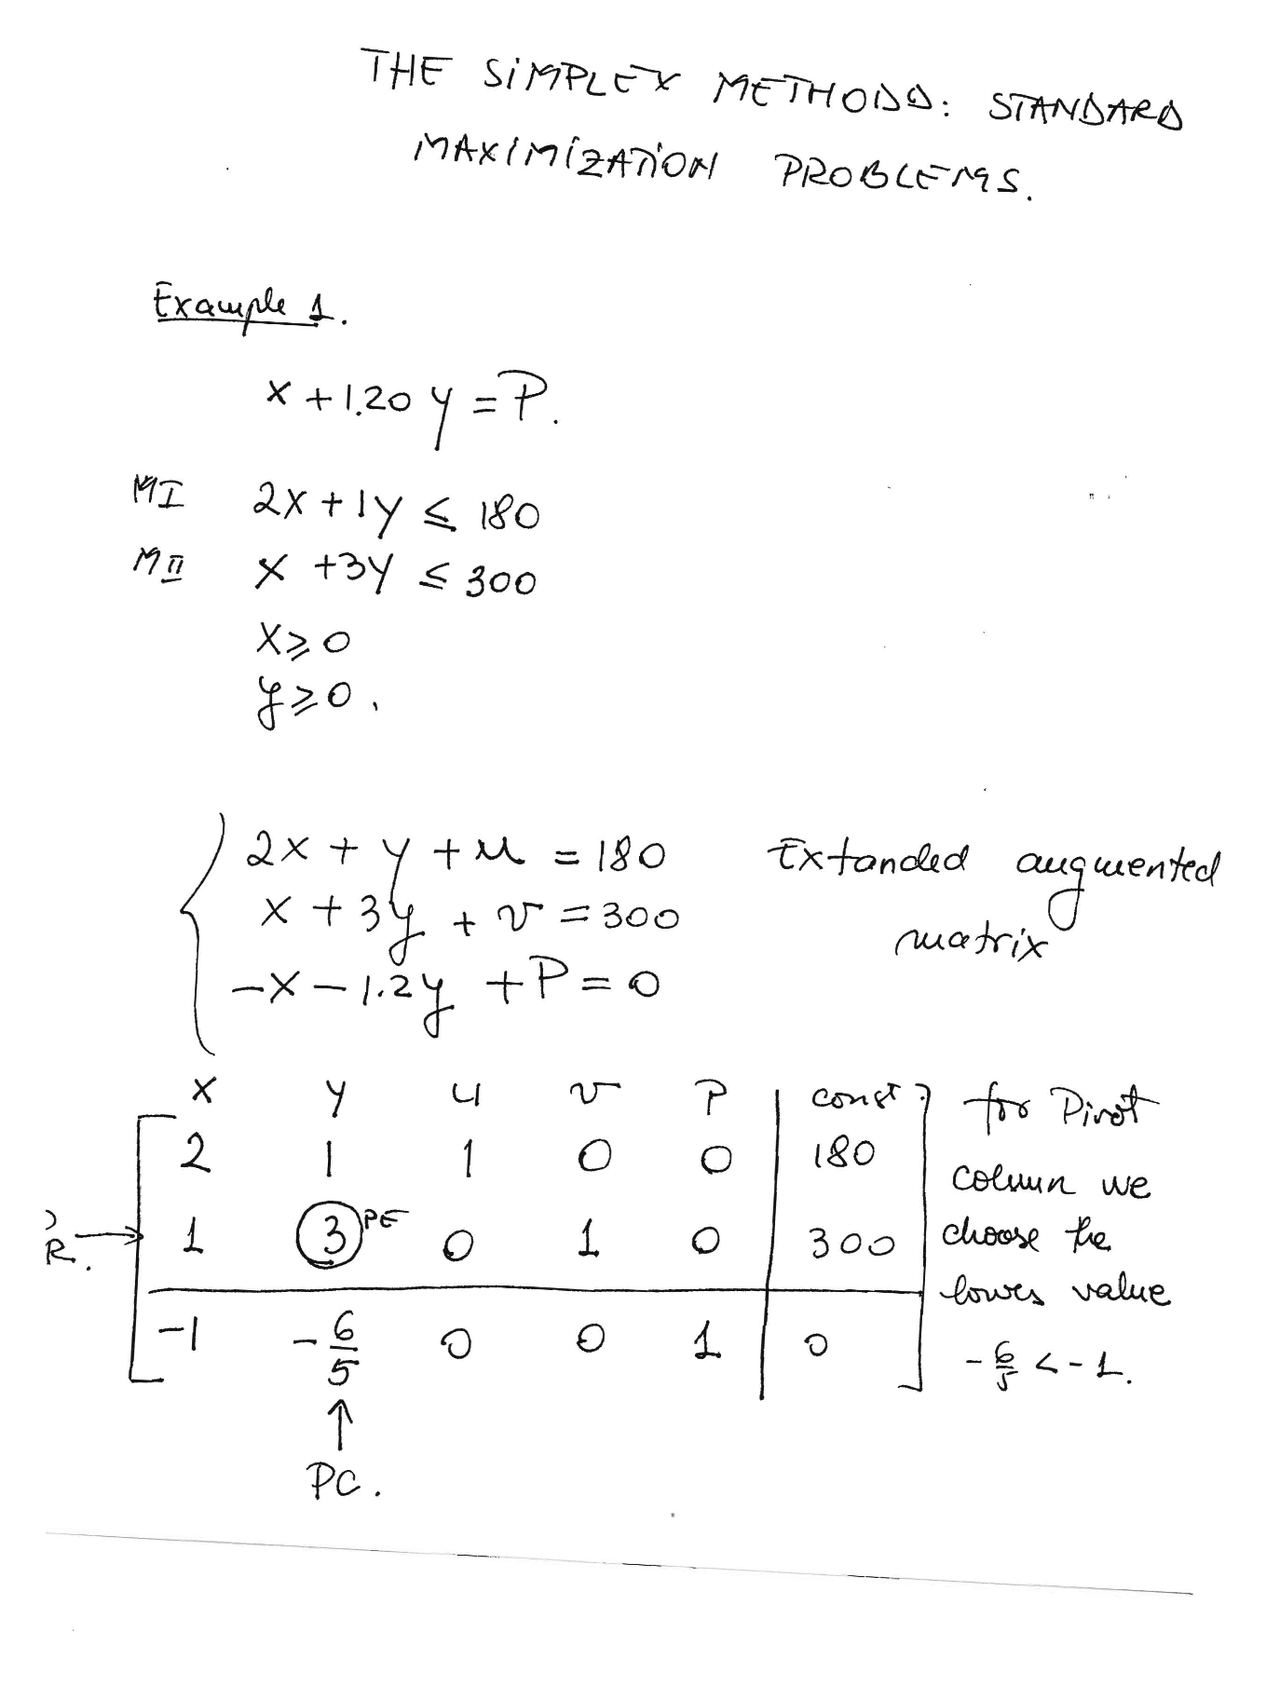 THE SIMPLEX METHODD: STANDARD
MAXIMIZATION PROBLEMS.
Example 1.
x + 1.20 y = P.
MI 2x + 1y ≤ 180
MII x + 3y ≤ 300
x ≥ 0
y ≥ 0.
2x + y + u = 180
x + 3y + v = 300
-x - 1.2y + P = 0
Extanded augmented
matrix
x y u v P const.
2 1 1 0 0 180
R. → 1 3 PE 0 1 0 300
-1 -6/5 0 0 1 0
↑
PC.
for Pivot
column we
choose the
lowes value
-6/5 < -1.